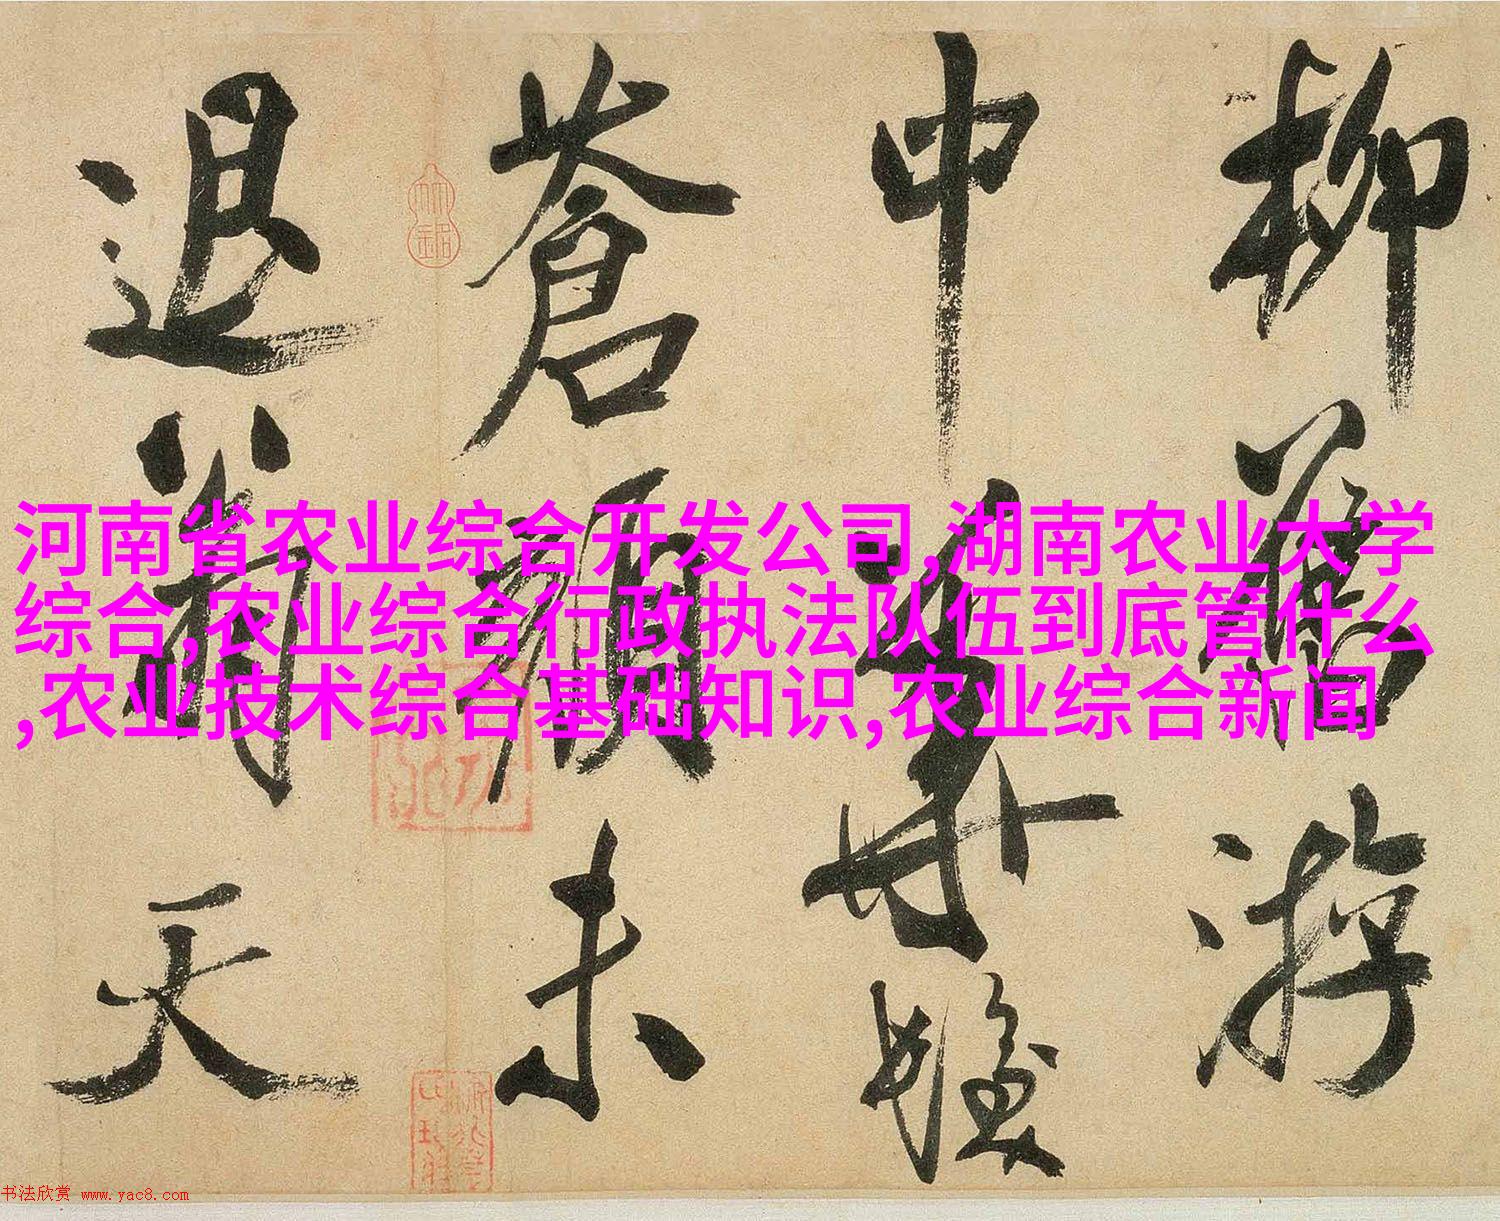 柳舊游
中
蒼顏未
退天
河南省农业综合开发公司,湖南农业大学
综合,农业综合行政执法队伍到底管什么
,农业技术综合基础知识,农业综合新闻
书法欣赏 www.yac8.com